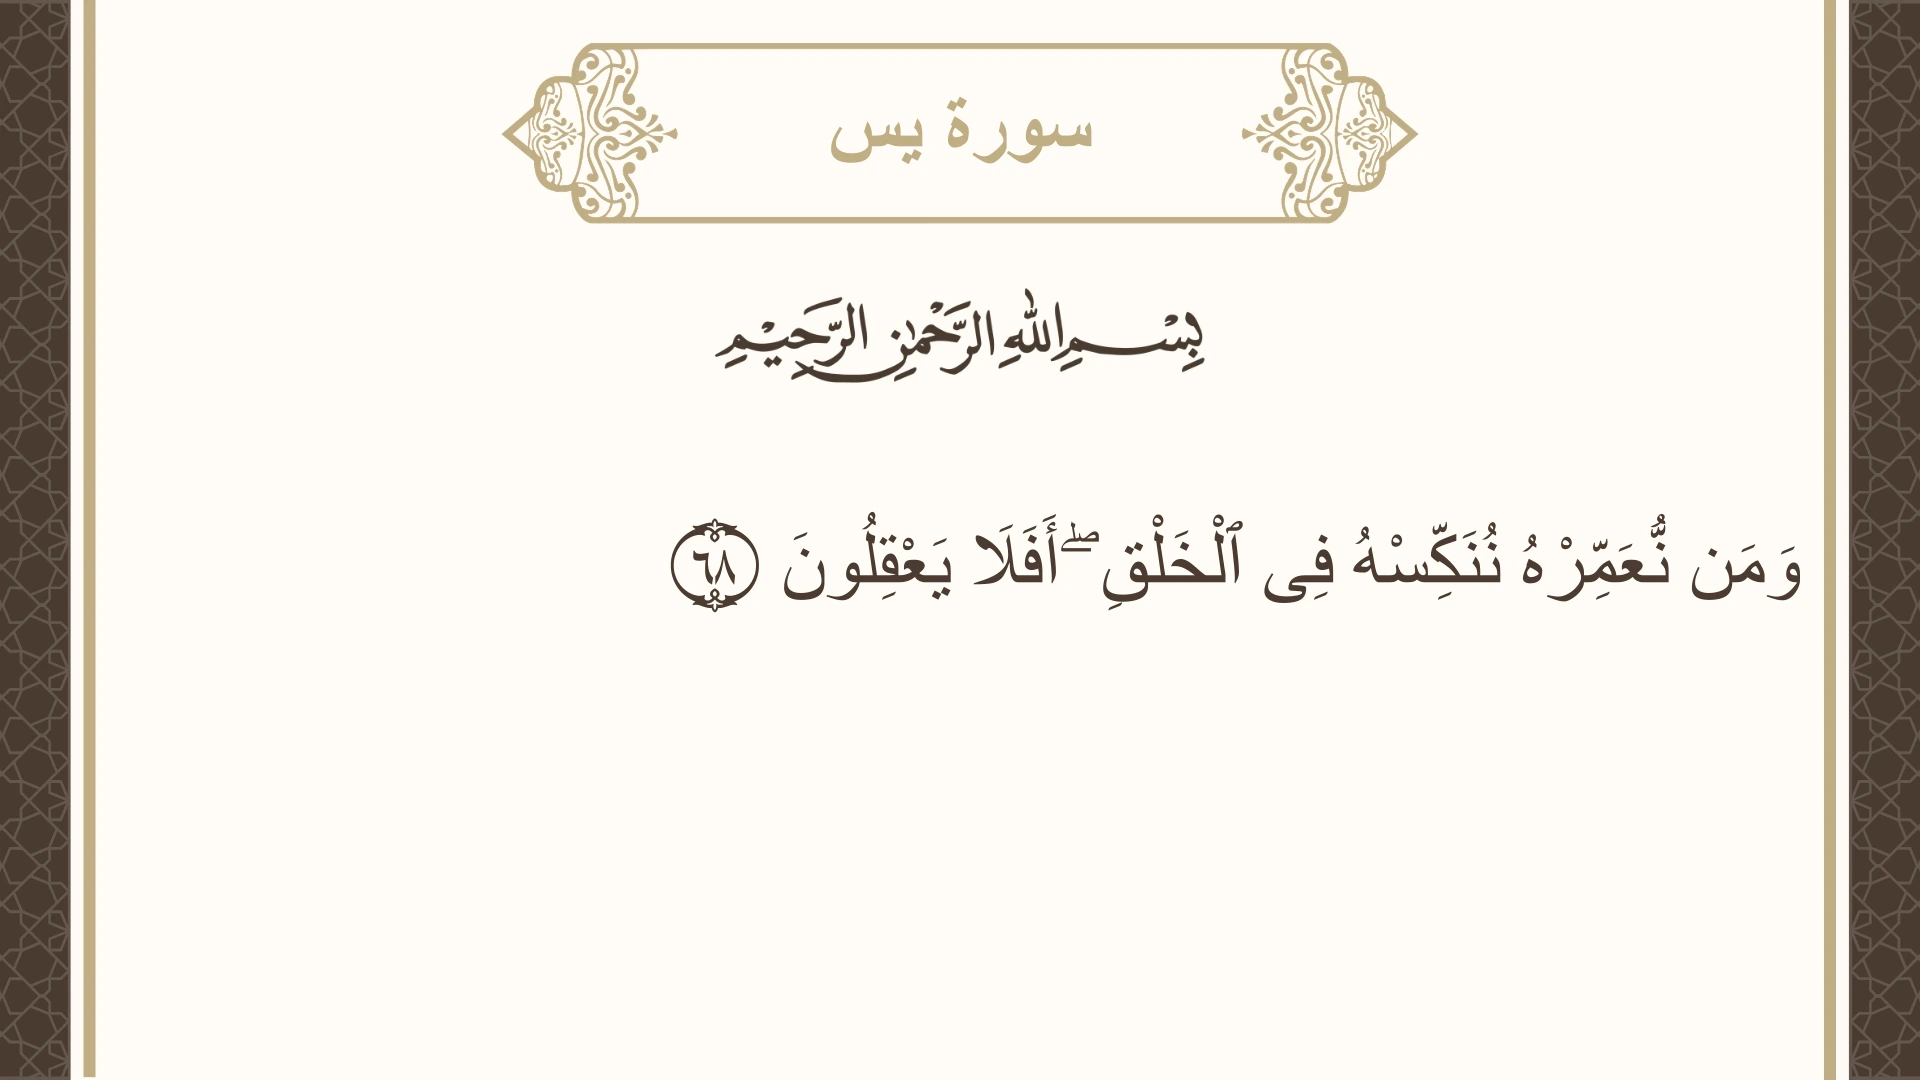 سورة يس
بِسْمِ اللهِ الرَّحْمٰنِ الرَّحِيْمِ
وَمَن نُّعَمِّرْهُ نُنَكِّسْهُ فِى ٱلْخَلْقِ ۖ أَفَلَا يَعْقِلُونَ ٦٨